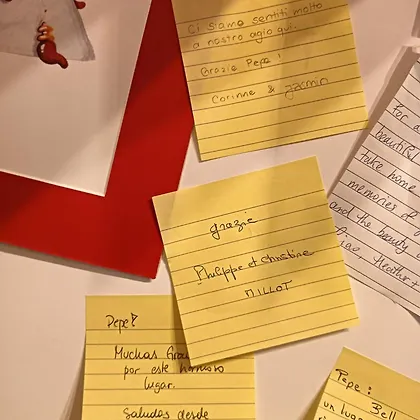 Ci siamo sentiti molto
a nostro agio qui.
Grazie Pepe!
Corinne & Jasmin
For a
beautiful
take home
memories of
and the beauty o
Ciao, Heather +
grazie
Philippe et Christine
MILLOT
Pepe!
Muchas Gra
por este hermoso
lugar.
Saludos desde
Pepe:
Bell
un luga